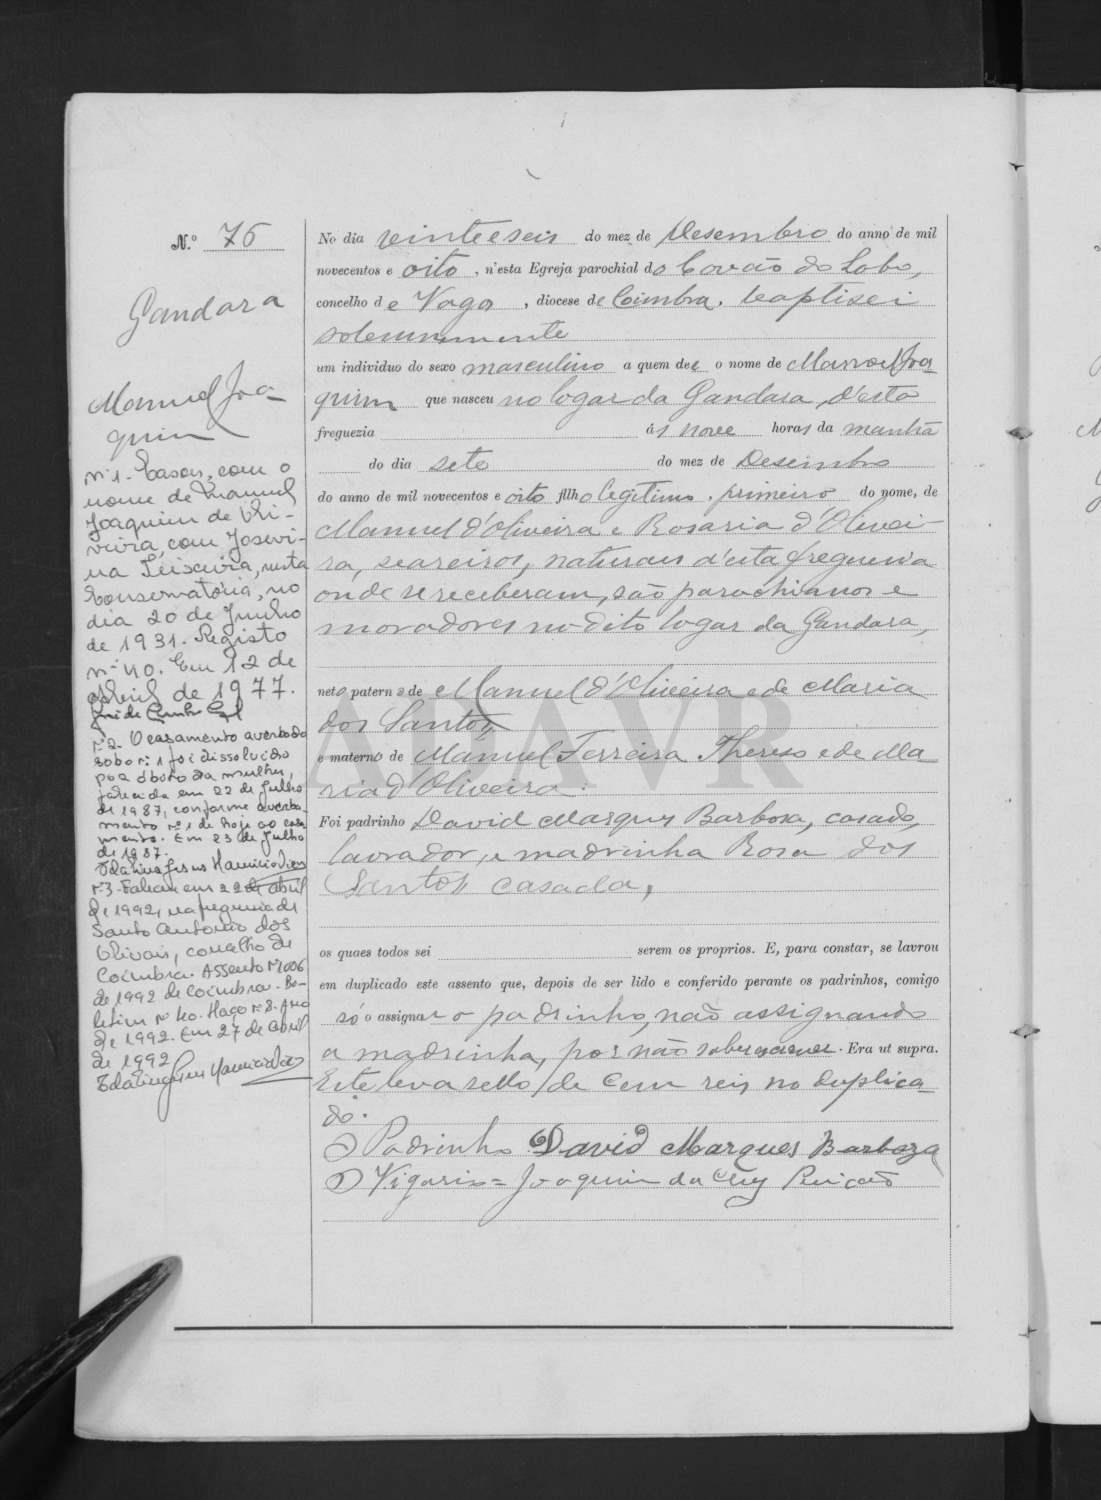 N.º 76
Gandara
Manuel Joa-
quim
nº 1- Casou, com o
nome de Manuel
Joaquim de Oli-
veira, com Josevi-
na Teixeira, nesta
Conservatória, no
dia 20 de Junho
de 1931. Registo
nº 40. Em 12 de
Abril de 1977.
nº 2- O casamento averbado
sob o nº 1 foi dissolvido
por óbito da mulher,
falecida em 22 de Julho
de 1987, conforme averba-
mento nº 1 de hoje ao casa
mento. Em 23 de Julho
de 1987.
nº 3- Faleceu em 22 de abril
de 1992, na freguesia de
Santo Antonio dos
Olivais, concelho de
Coimbra. Assento nº 1006
de 1992 de Coimbra. Bo-
letim nº 40. Maço nº 8. Ano
de 1992. Em 27 de abril
de 1992
No dia vinte e seis do mez de Desembro do anno de mil
novecentos e oito, n'esta Egreja parochial do Covão do Lobo,
concelho de Vagos, diocese de Coimbra. baptisei
solemnemente
um individuo do sexo masculino a quem dei o nome de Manoel Joa
quim que nasceu no logar da Gandara, d'esta
freguezia ás nove horas da manhã
do dia sete do mez de Desembro
do anno de mil novecentos e oito filho legitimo. primeiro do nome, de
Manuel d'Oliveira e Rosaria d'Olivei-
ra, seareiros, naturaes d'esta freguesia
onde se receberam, são parochianos e
moradores no dito logar da Gandara,
neto paterno de Manuel d'Oliveira e de Maria
dos Santos,
e materno de Manuel Ferreira Thereso e de Ma
ria d'Oliveira.
Foi padrinho David Marques Barbosa, casado,
lavrador, e madrinha Rosa dos
Santos casada,
os quaes todos sei serem os proprios. E, para constar, se lavrou
em duplicado este assento que, depois de ser lido e conferido perante os padrinhos, comigo
só o assignar o padrinho, não assignando
a madrinha, por não saber escrever. Era ut supra.
Este leva sello de cem reis no duplica-
do.
O Padrinho David Marques Barboza
O Vigario= Joaquim da Cruz
ADAVR